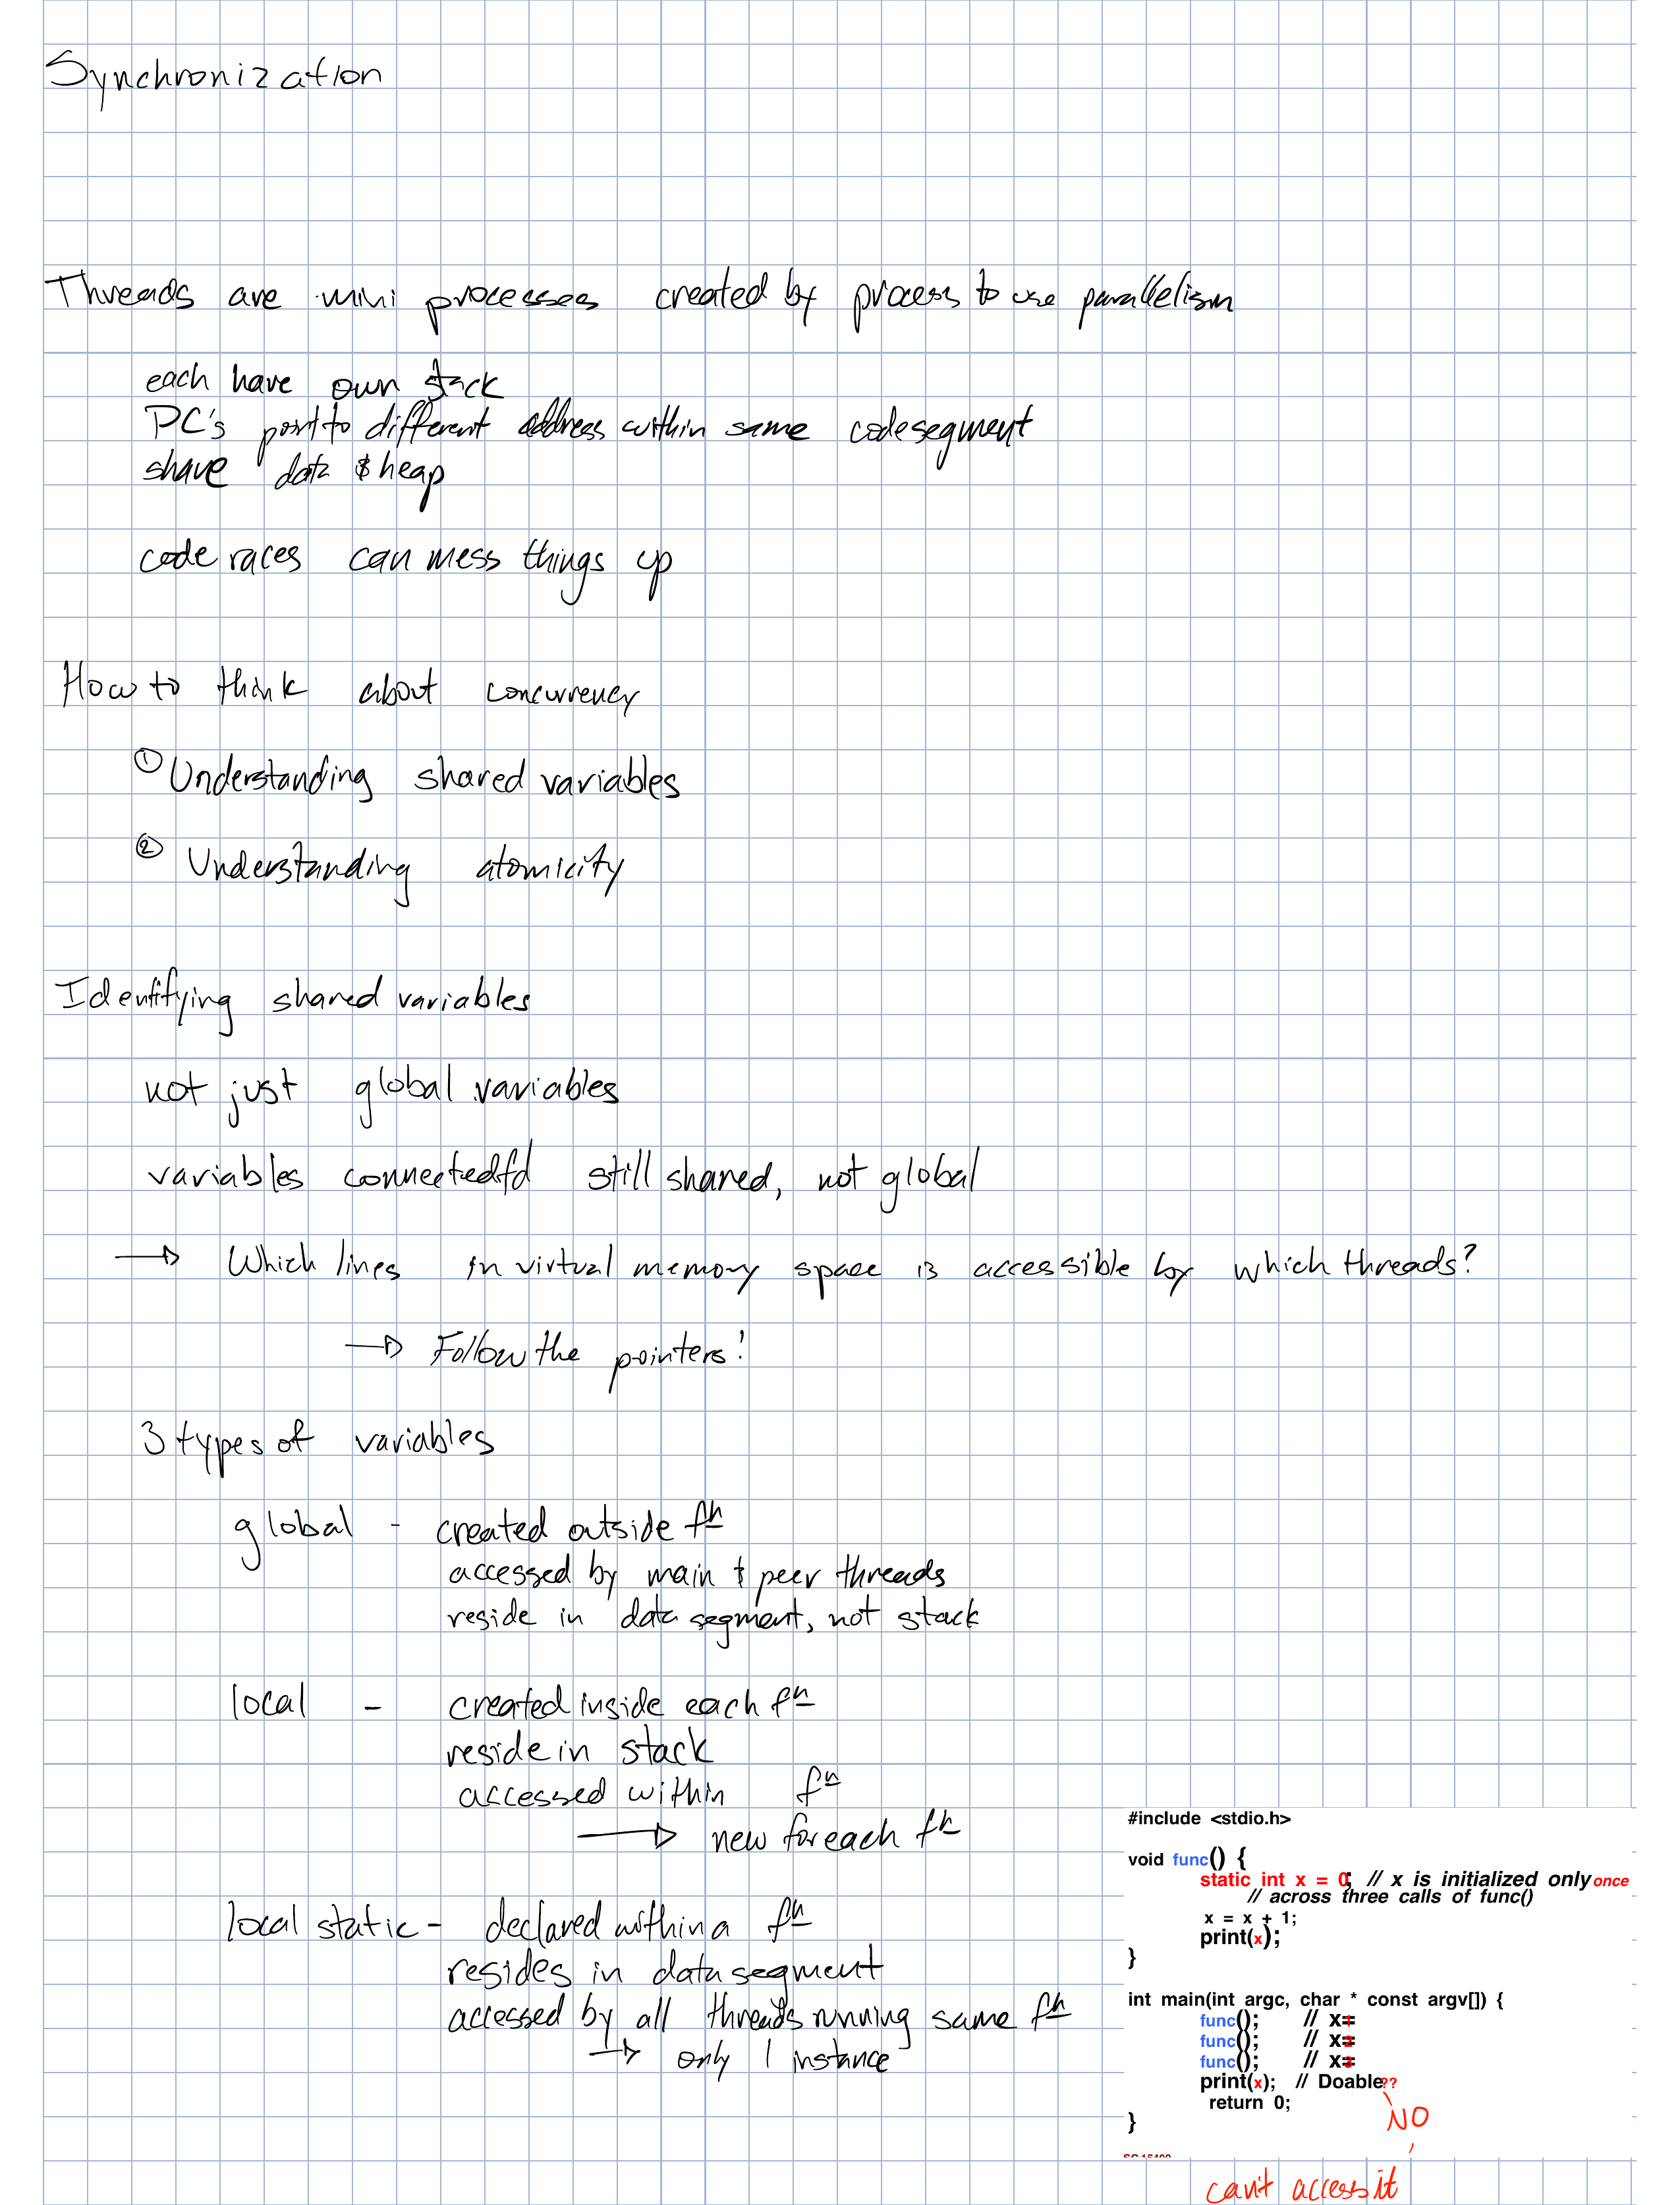 Synchronization
Threads are mini processes created by process to use parallelism
each have own stack
PC's point to different address within same code segment
share data & heap
code races can mess things up
How to think about concurrency
① Understanding shared variables
② Understanding atomicity
Identifying shared variables
not just global variables
variables connectedfd still shared, not global
→ Which lines in virtual memory space is accessible by which threads?
→ Follow the pointers!
3 types of variables
global - created outside fn
accessed by main & peer threads
reside in data segment, not stack
local - created inside each fn
reside in stack
accessed within fn
→ new for each fn
local static - declared within a fn
resides in data segment
accessed by all threads running same fn
→ only 1 instance
#include <stdio.h>
void func() {
static int x = 0; // x is initialized only once
// across three calls of func()
x = x + 1;
print(x);
}
int main(int argc, char * const argv[]) {
func(); // x=1
func(); // x=2
func(); // x=3
print(x); // Doable??
return 0;
}
NO
can't access it